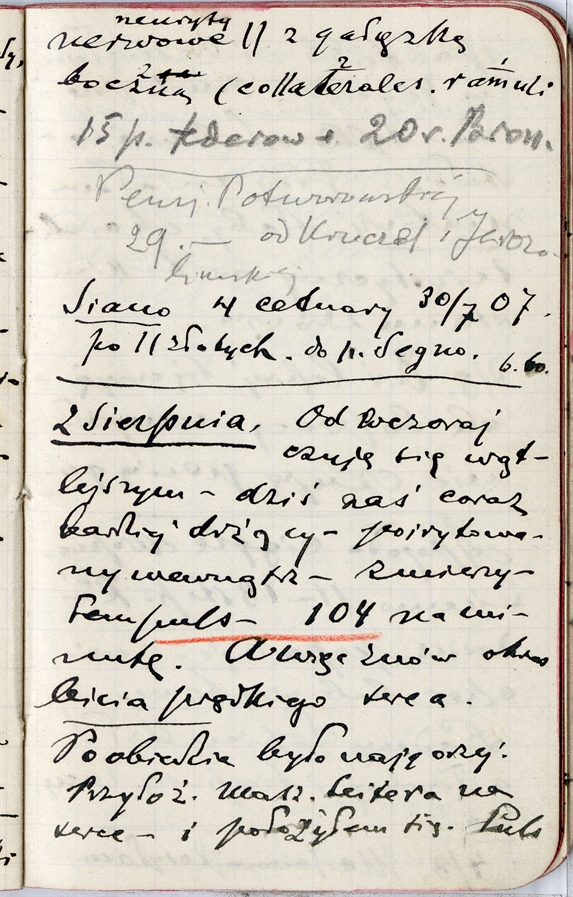 neuryty
nerwowe || z gałązką
boczną (collaterales. ramuli
15 p. + 20 r.
Pensj.
29.— od Kruczej i Jerozo-
limskiej
Siano 4 cetnary 30/7 07.
po 11 złotych. do p. Segno. 6.60.
2 Sierpnia. Od wczoraj
czuję się wąt-
lejszym – dziś zaś coraz
bardziej drżący – poirytowa-
ny wewnątrz – zmierzy-
łem puls – 104 na mi-
nutę. A więc znów okres
bicia prędkiego serca.
Po obiedzie było najgorzej.
Przyłoż. Leitera na
serce – i położyłem się. Puls